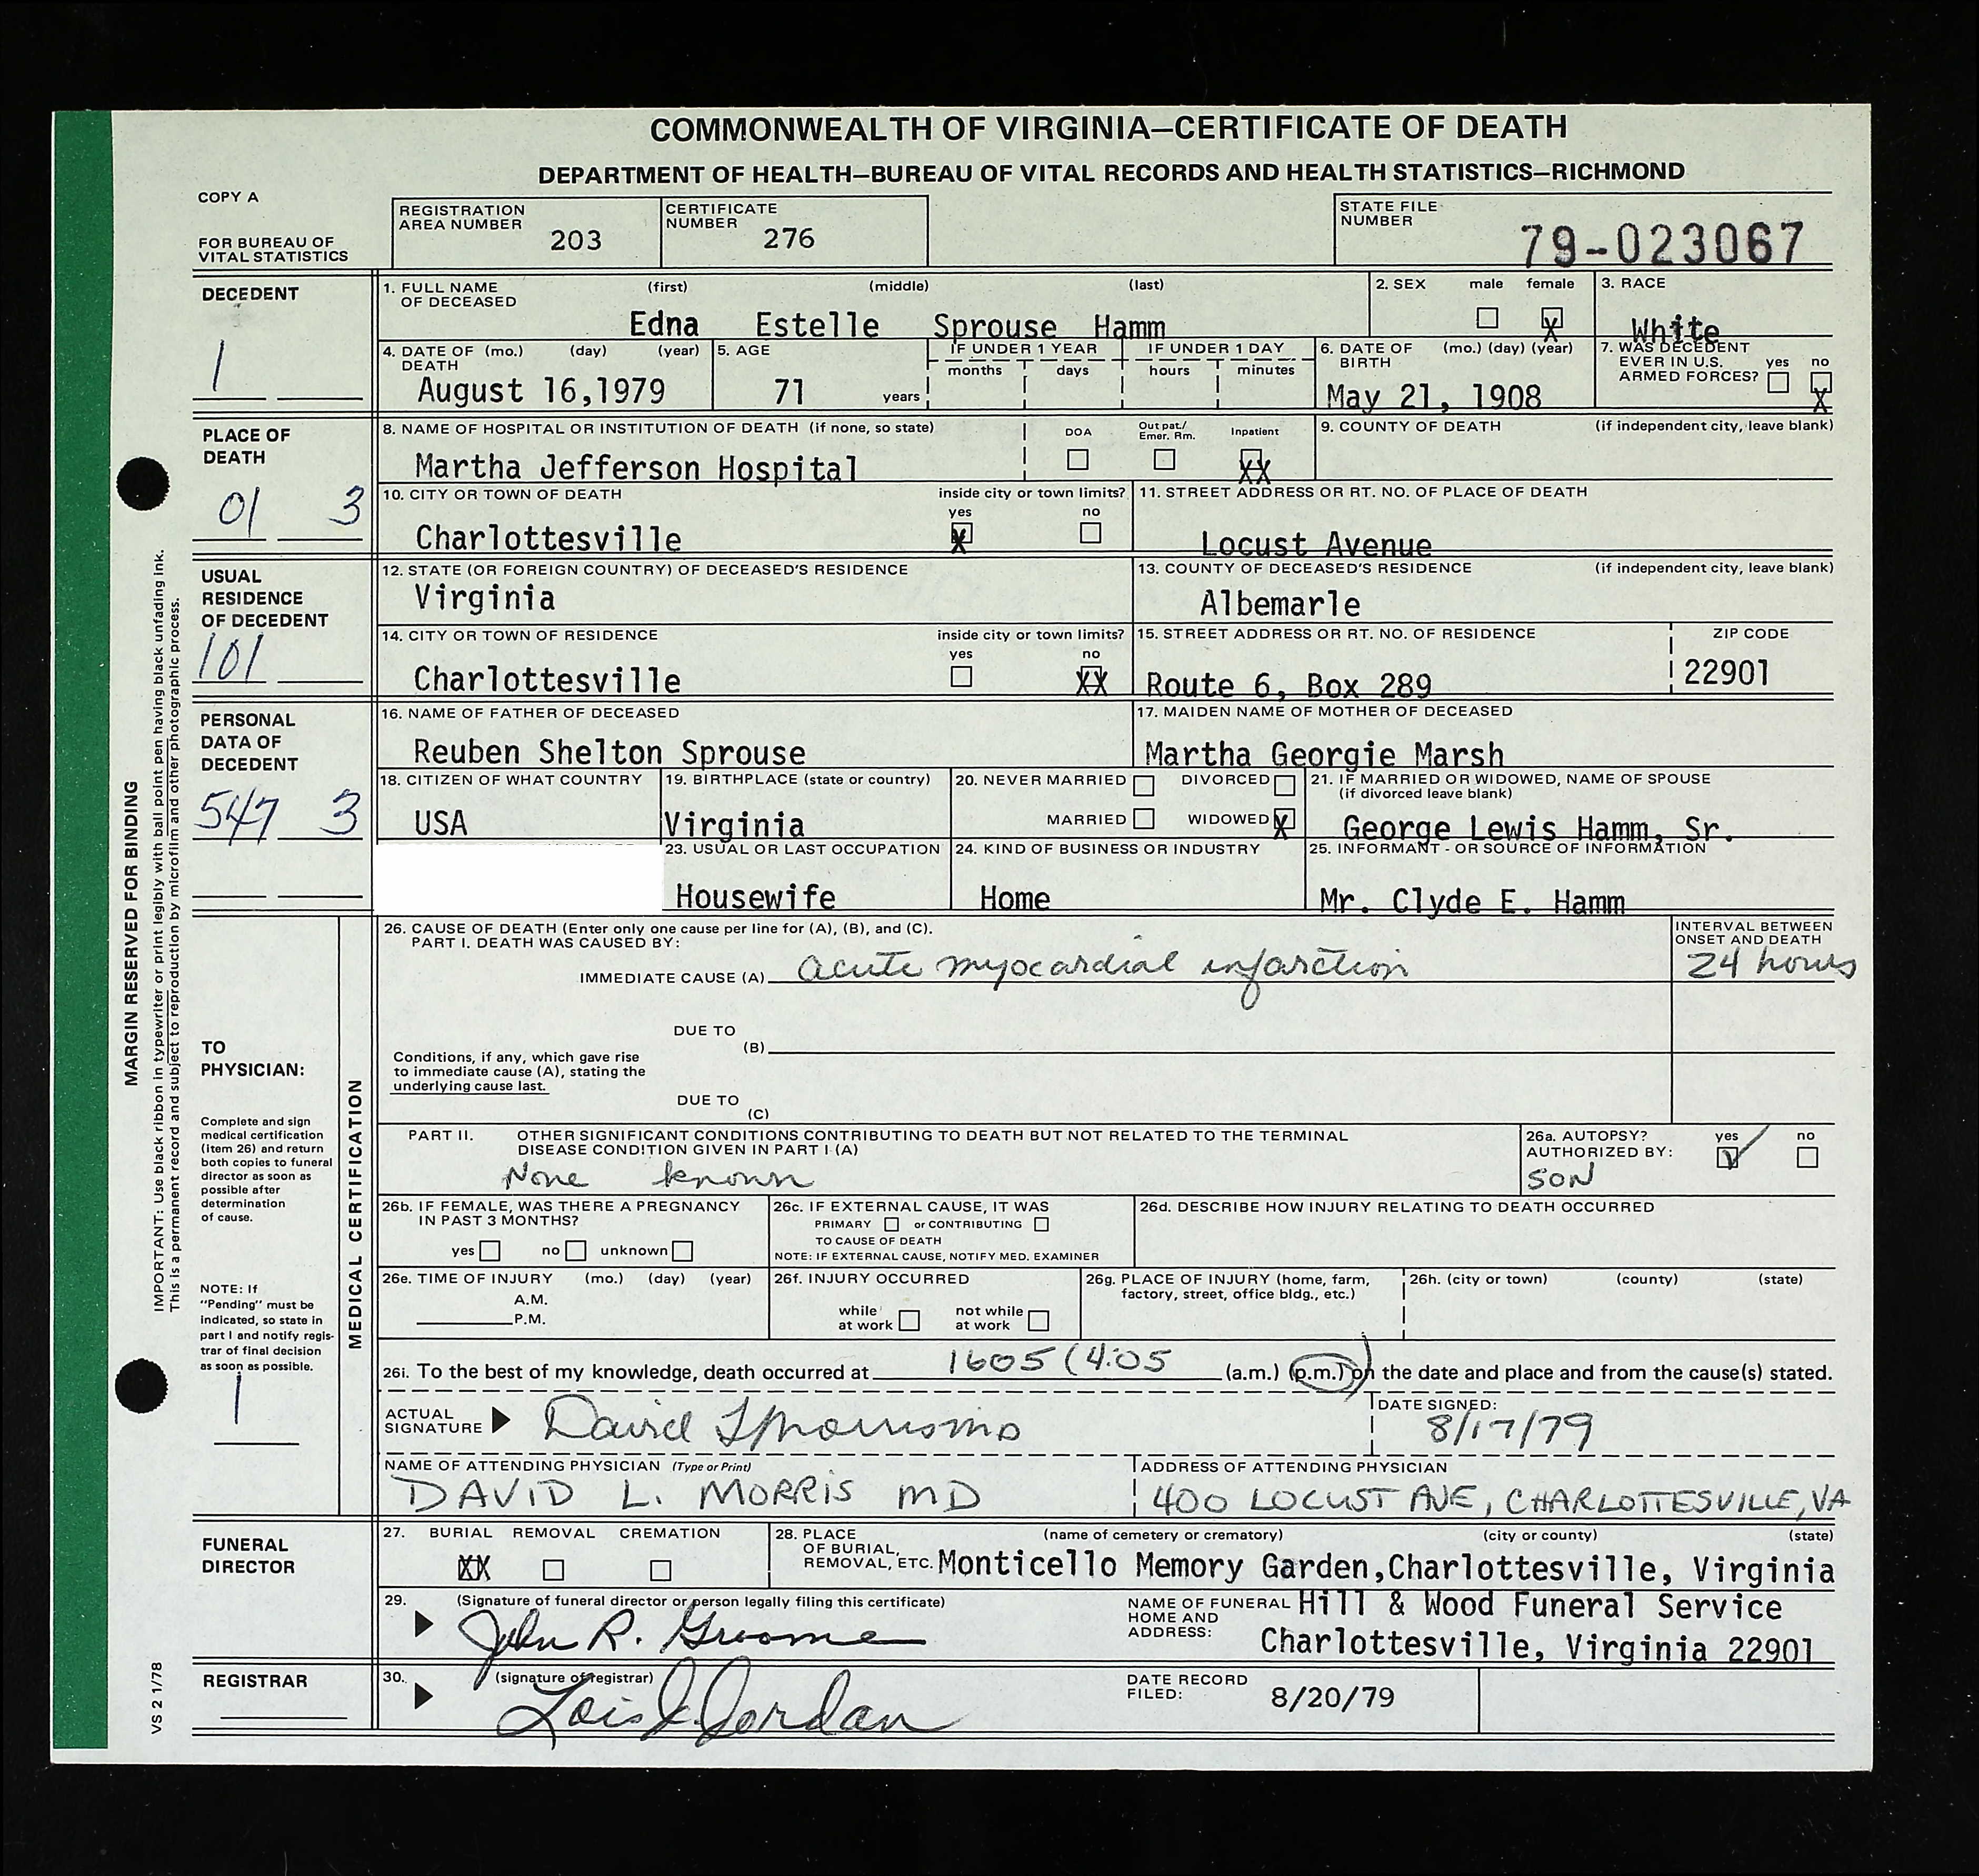 COMMONWEALTH OF VIRGINIA—CERTIFICATE OF DEATH
DEPARTMENT OF HEALTH—BUREAU OF VITAL RECORDS AND HEALTH STATISTICS—RICHMOND
COPY A
FOR BUREAU OF
VITAL STATISTICS
REGISTRATION
AREA NUMBER 203
CERTIFICATE
NUMBER 276
STATE FILE
NUMBER 79-023067
DECEDENT
1
1. FULL NAME OF DECEASED (first) (middle) (last)
Edna Estelle Sprouse Hamm
2. SEX male female X
3. RACE
White
4. DATE OF DEATH (mo.) (day) (year)
August 16,1979
5. AGE
71 years
IF UNDER 1 YEAR
months days
IF UNDER 1 DAY
hours minutes
6. DATE OF BIRTH (mo.) (day) (year)
May 21, 1908
7. WAS DECEDENT
EVER IN U.S.
ARMED FORCES? yes no X
PLACE OF
DEATH
01 3
8. NAME OF HOSPITAL OR INSTITUTION OF DEATH (if none, so state)
Martha Jefferson Hospital
DOA
Out pat./
Emer. Rm.
Inpatient
XX
9. COUNTY OF DEATH (if independent city, leave blank)
10. CITY OR TOWN OF DEATH inside city or town limits?
yes no
Charlottesville X
11. STREET ADDRESS OR RT. NO. OF PLACE OF DEATH
Locust Avenue
USUAL
RESIDENCE
OF DECEDENT
101
12. STATE (OR FOREIGN COUNTRY) OF DECEASED'S RESIDENCE
Virginia
13. COUNTY OF DECEASED'S RESIDENCE (if independent city, leave blank)
Albemarle
14. CITY OR TOWN OF RESIDENCE inside city or town limits?
yes no
Charlottesville XX
15. STREET ADDRESS OR RT. NO. OF RESIDENCE
Route 6, Box 289
ZIP CODE
22901
PERSONAL
DATA OF
DECEDENT
547 3
16. NAME OF FATHER OF DECEASED
Reuben Shelton Sprouse
17. MAIDEN NAME OF MOTHER OF DECEASED
Martha Georgie Marsh
18. CITIZEN OF WHAT COUNTRY
USA
19. BIRTHPLACE (state or country)
Virginia
20. NEVER MARRIED DIVORCED
MARRIED WIDOWED X
21. IF MARRIED OR WIDOWED, NAME OF SPOUSE
(if divorced leave blank)
George Lewis Hamm, Sr.
23. USUAL OR LAST OCCUPATION
Housewife
24. KIND OF BUSINESS OR INDUSTRY
Home
25. INFORMANT - OR SOURCE OF INFORMATION
Mr. Clyde E. Hamm
MARGIN RESERVED FOR BINDING
IMPORTANT: Use black ribbon in typewriter or print legibly with ball point pen having black unfading ink.
This is a permanent record and subject to reproduction by microfilm and other photographic process.
VS 2 1/78
TO
PHYSICIAN:
Complete and sign
medical certification
(item 26) and return
both copies to funeral
director as soon as
possible after
determination
of cause.
NOTE: If
"Pending" must be
indicated, so state in
part I and notify regis-
trar of final decision
as soon as possible.
1
MEDICAL CERTIFICATION
26. CAUSE OF DEATH (Enter only one cause per line for (A), (B), and (C).
PART I. DEATH WAS CAUSED BY:
IMMEDIATE CAUSE (A) acute myocardial infarction
INTERVAL BETWEEN
ONSET AND DEATH
24 hours
DUE TO
(B)
Conditions, if any, which gave rise
to immediate cause (A), stating the
underlying cause last.
DUE TO
(C)
PART II. OTHER SIGNIFICANT CONDITIONS CONTRIBUTING TO DEATH BUT NOT RELATED TO THE TERMINAL
DISEASE CONDITION GIVEN IN PART I (A)
None known
26a. AUTOPSY? yes no
AUTHORIZED BY:
SON
26b. IF FEMALE, WAS THERE A PREGNANCY
IN PAST 3 MONTHS?
yes no unknown
26c. IF EXTERNAL CAUSE, IT WAS
PRIMARY or CONTRIBUTING
TO CAUSE OF DEATH
NOTE: IF EXTERNAL CAUSE, NOTIFY MED. EXAMINER
26d. DESCRIBE HOW INJURY RELATING TO DEATH OCCURRED
26e. TIME OF INJURY (mo.) (day) (year)
A.M.
P.M.
26f. INJURY OCCURRED
while at work not while at work
26g. PLACE OF INJURY (home, farm,
factory, street, office bldg., etc.)
26h. (city or town) (county) (state)
26i. To the best of my knowledge, death occurred at 1605 (4:05 (a.m.) (p.m.) on the date and place and from the cause(s) stated.
ACTUAL
SIGNATURE David L Morris MD
DATE SIGNED:
8/17/79
NAME OF ATTENDING PHYSICIAN (Type or Print)
DAVID L. MORRIS MD
ADDRESS OF ATTENDING PHYSICIAN
400 LOCUST AVE, CHARLOTTESVILLE, VA
FUNERAL
DIRECTOR
27. BURIAL REMOVAL CREMATION
XX
28. PLACE
OF BURIAL,
REMOVAL, ETC. (name of cemetery or crematory) (city or county) (state)
Monticello Memory Garden,Charlottesville, Virginia
29. (Signature of funeral director or person legally filing this certificate)
John R. Groome
NAME OF FUNERAL
HOME AND
ADDRESS:
Hill & Wood Funeral Service
Charlottesville, Virginia 22901
REGISTRAR
30. (signature of registrar)
Lois J. Jordan
DATE RECORD
FILED: 8/20/79